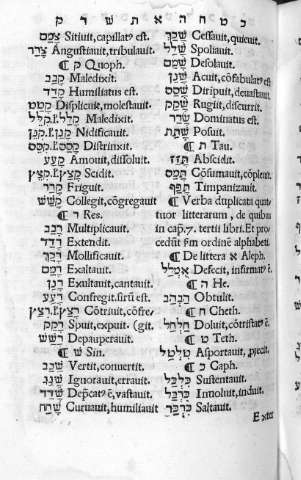 כ ט ח ה א ת ש ר ק
צמם Sitiuit, capillat9 est.
צרר Angustiauit, tribulauit.
¶ ק Quoph.
קבב Maledixit.
קדד Humiliatus est.
קטט Displicuit, molestauit.
קלל Maledixit.
קנן Nidificauit.
קסס Distrinxit.
קעע Amouit, dissoluit.
קצץ Scidit.
קרר Friguit.
קשש Collegit, cōgregauit
¶ ר Res.
רבב Multiplicauit.
רדד Extendit.
רכך Mollificauit.
רמם Exaltauit.
רנן Exultauit, cantauit.
רעע Confregit.
רצץ Cōtriuit,
רקק Spuit, expuit.
רשש Depauperauit.
¶ ש Sin.
שבב Vertit, conuertit.
שגג Ignorauit, errauit.
שדד vastauit.
שחח Curuauit, humiliauit
שכך Cessauit, quieuit.
שלל Spoliauit.
שמם Desolauit.
שנן Acuit, cōfabulat9 est
שסס Diripuit, deuastauit.
שקק Rugiit, discurrit.
שרר Dominatus est.
שתת Posuit.
¶ ת Tau.
תזז Abscidit.
תמם Cōsumauit,
תפף Timpanizauit.
¶ Verba duplicata quatuor
tuor litterarum, de quibus
in cap. 7. tertii libri. Et pro
cedūt ordine alphabeti
¶ De littera א Aleph.
אמלל Defecit, infirmat9 ē.
¶ ה He.
הבהב Obtulit.
¶ ח Cheth.
חלחל Doluit, cōtristat9 ē.
¶ ט Teth.
טלטל Asportauit, proiecit.
¶ כ Caph.
כלכל Sustentauit.
כרבל Inuoluit, induit.
כרכר Saltauit.
Exter